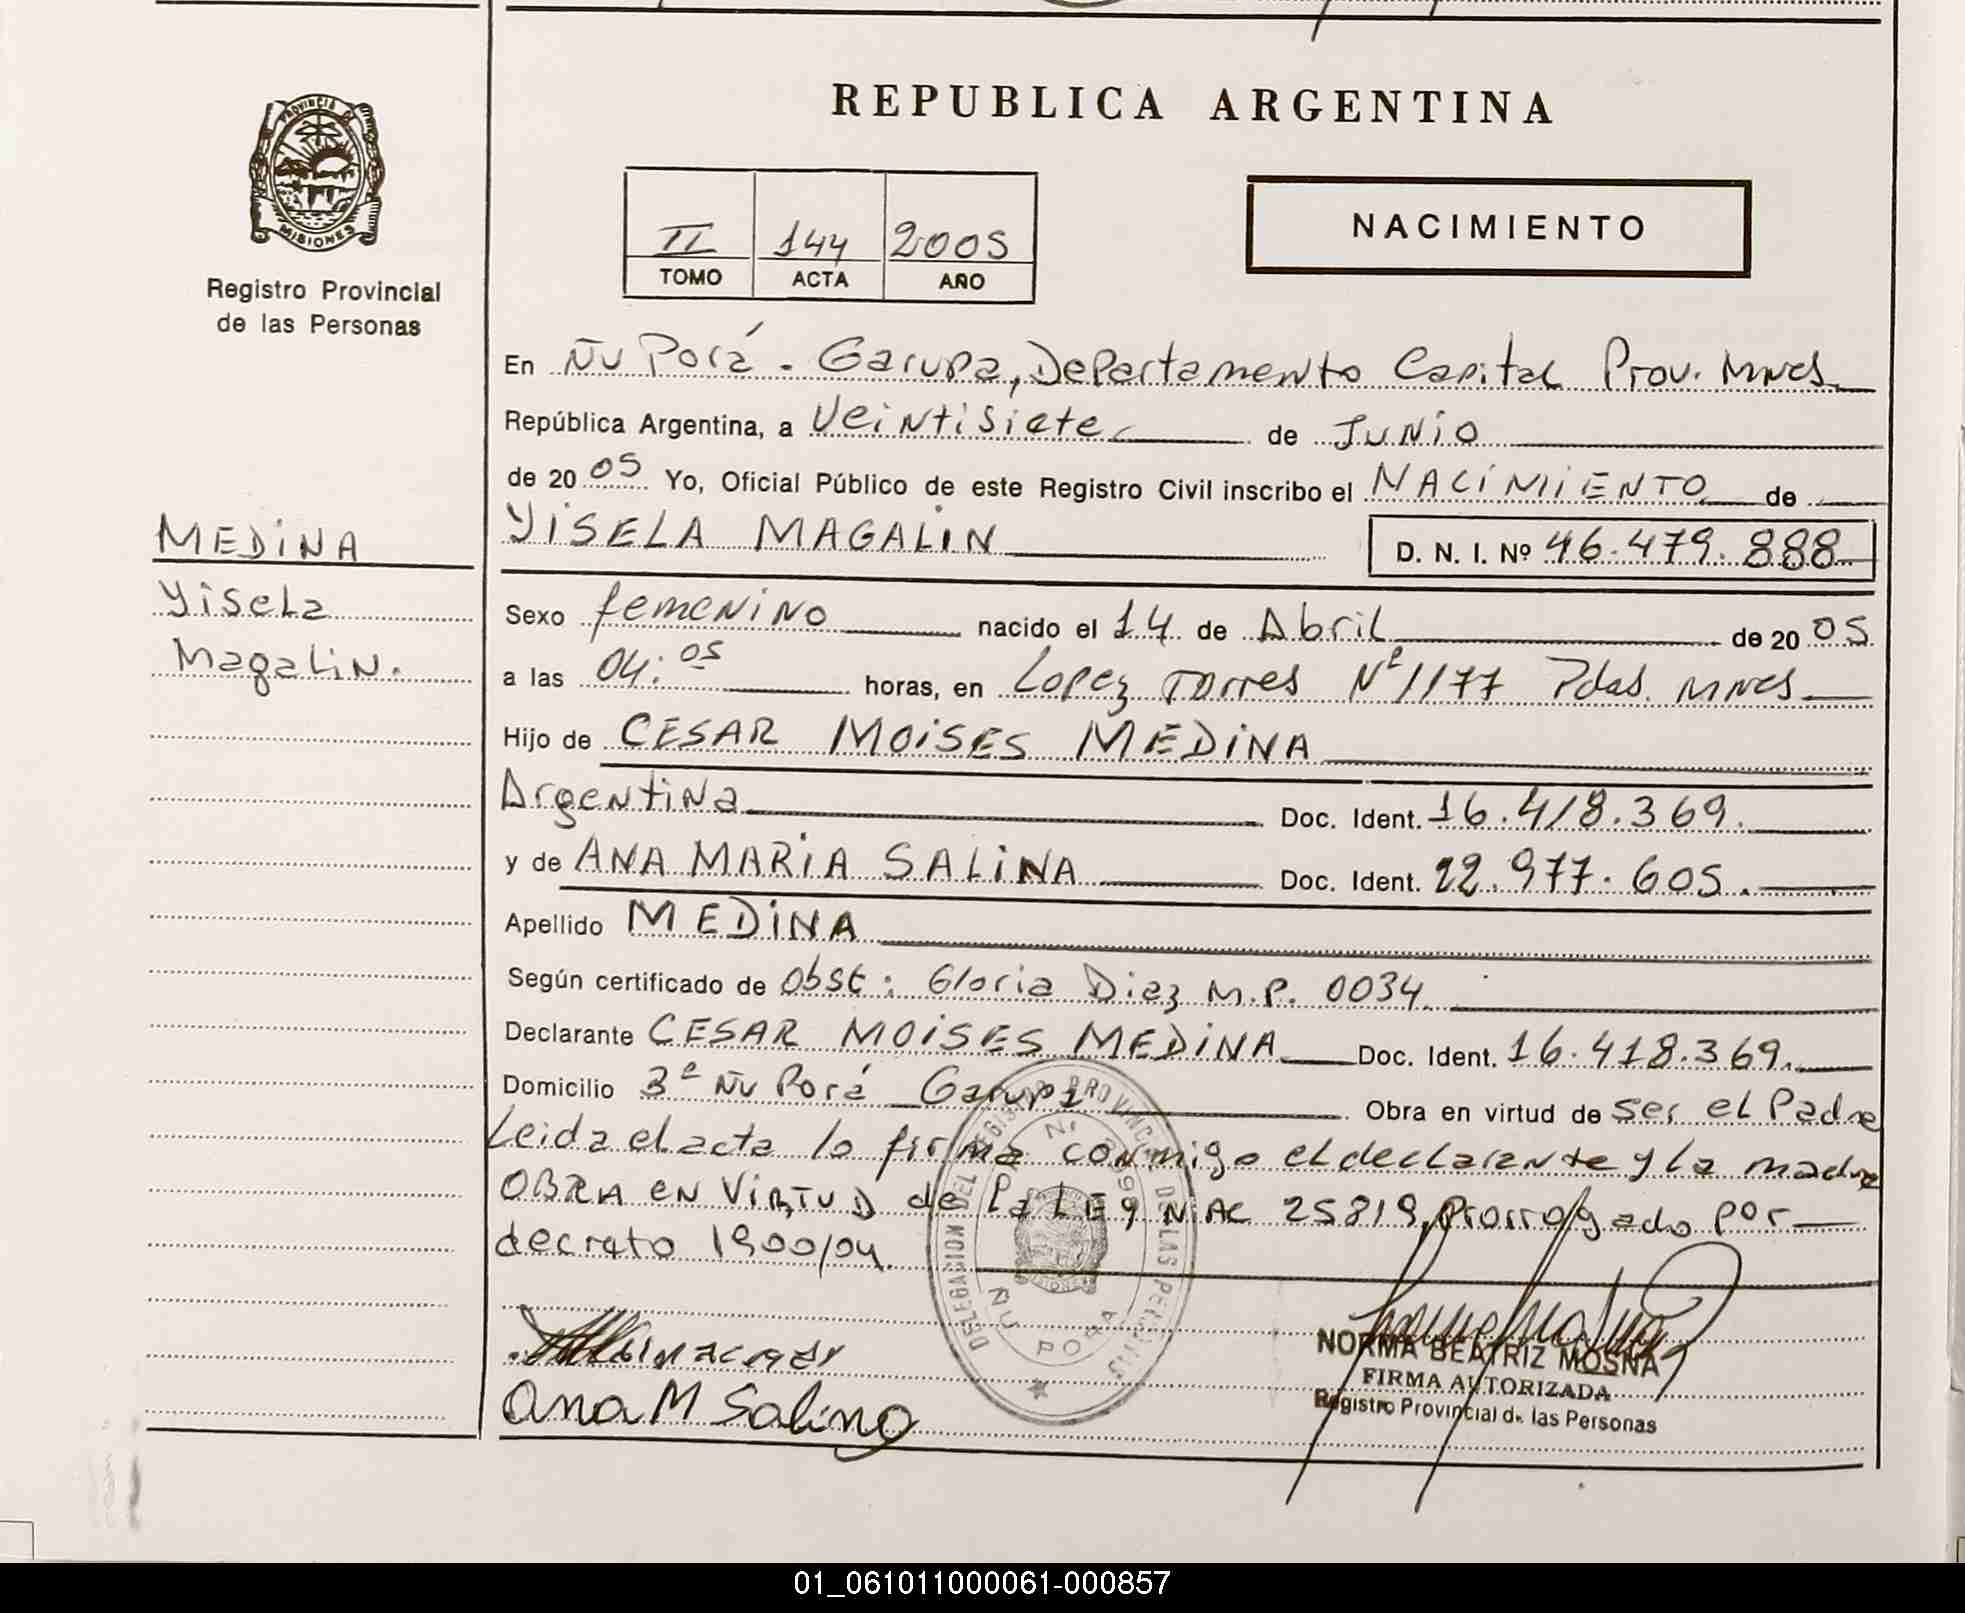 REPUBLICA ARGENTINA
PROVINCIA DE
MISIONES
Registro Provincial
de las Personas
II 144 2005
TOMO ACTA AÑO
NACIMIENTO
En Ñu Porá - Garupa, Departamento Capital Prov. Mnes
República Argentina, a Veintisiete de Junio
de 20 05 Yo, Oficial Público de este Registro Civil inscribo el NACIMIENTO de
YISELA MAGALIN
D. N. I. Nº 46.479.888
MEDINA
Yisela
Magalin.
Sexo femenino nacido el 14 de Abril de 20 05
a las 04:05 horas, en Lopez Torres Nº 1177 Pdas. Mnes
Hijo de CESAR MOISES MEDINA
Argentina Doc. Ident. 16.418.369.
y de ANA MARIA SALINA Doc. Ident. 22.977.605.
Apellido MEDINA
Según certificado de Obst: Gloria Diez M.P. 0034.
Declarante CESAR MOISES MEDINA Doc. Ident. 16.418.369.
Domicilio 3ª Ñu Porá Garupá Obra en virtud de ser el Padre
Leida el acta lo firma conmigo el declarante y la madre
OBRA EN VIRTUD de la LEY NAC 25819, prorrogado por
decreto 1900/04.
DELEGACION DEL REGISTRO PROVINCIAL DE LAS PERSONAS
ÑU PORA
Ana M Salina
NORMA BEATRIZ MOSNA
FIRMA AUTORIZADA
Registro Provincial de las Personas
01_061011000061-000857